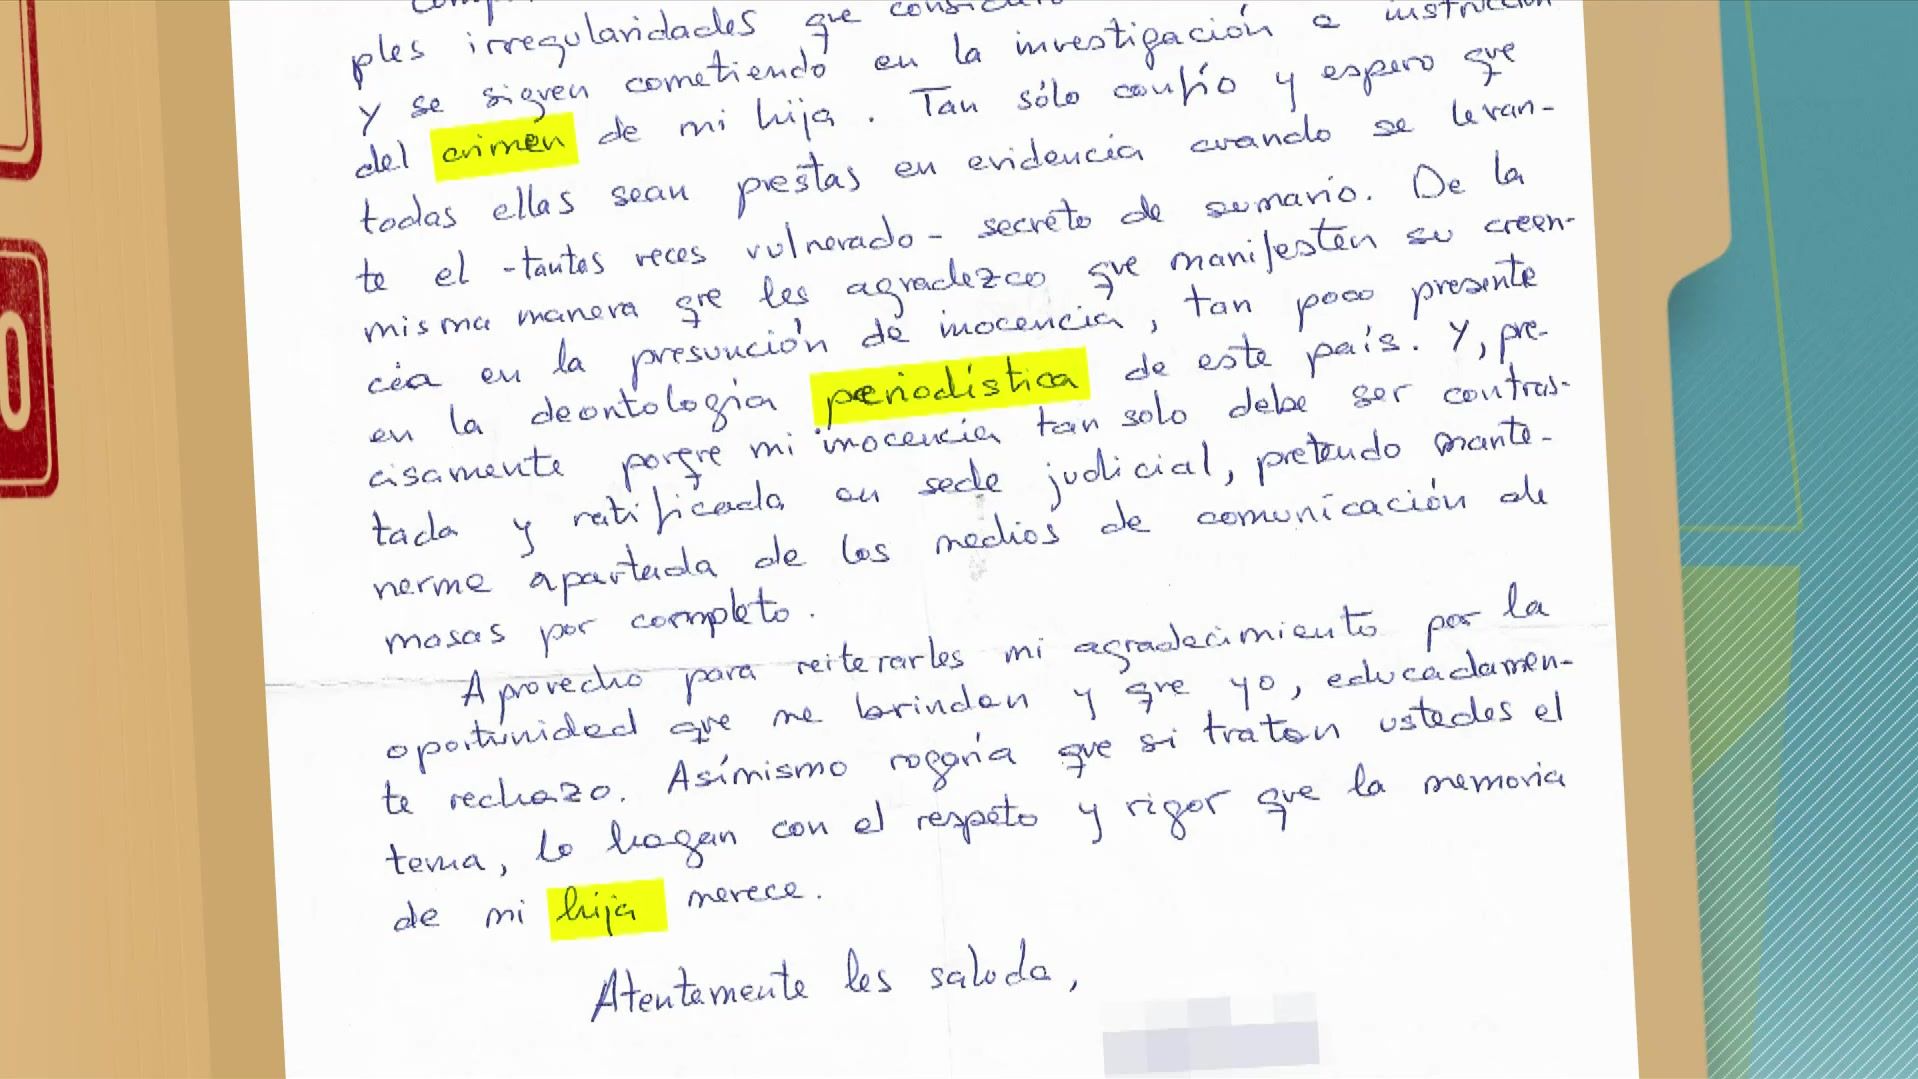 ples irregularidades que
y se siguen cometiendo en la investigación e instrucción
del crimen de mi hija. Tan sólo confío y espero que
todas ellas sean prestas en evidencia cuando se levan-
te el -tantas veces vulnerado- secreto de sumario. De la
misma manera que les agradezco que manifesten su creen-
cia en la presunción de inocencia, tan poco presente
en la deontología periodística de este país. Y, pre-
cisamente porque mi inocencia tan solo debe ser contras-
tada y ratificada en sede judicial, pretendo mante-
nerme apartada de los medios de comunicación de
masas por completo.
Aprovecho para reiterarles mi agradecimiento por la
oportunidad que me brindan y que yo, educadamen-
te rechazo. Asimismo rogaría que si tratan ustedes el
tema, lo hagan con el respeto y rigor que la memoria
de mi hija merece.
Atentamente les saluda,
O